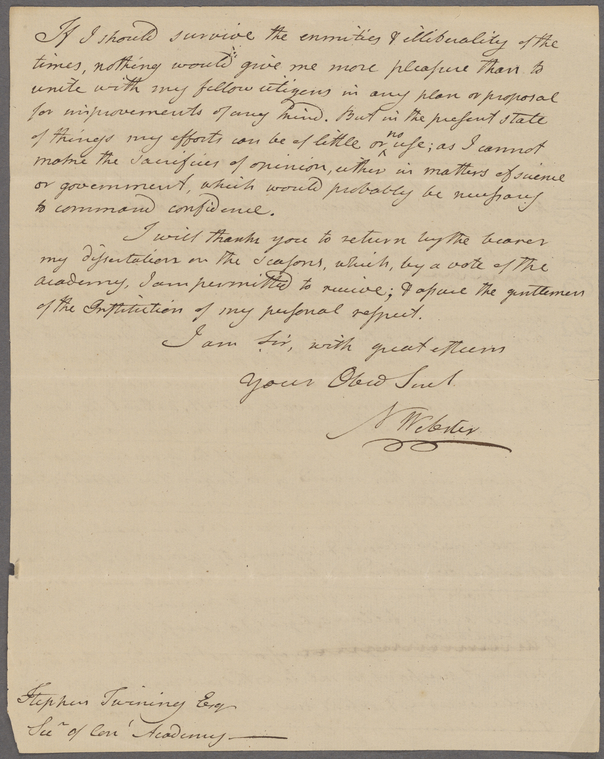 If I should survive the enmities & illiberality of the
times, nothing would give me more pleasure than to
unite with my fellow citizens in any plan or proposal
for improvements of any kind. But in the present state
of things my efforts can be of little or no use; as I cannot
make the sacrifices of opinion, either in matters of science
or government, which would probably be necessary
to command confidence.
I will thank you to return by the bearer
my dissertation on the Seasons, which, by a vote of the
academy, I am permitted to receive; & assure the gentlemen
of the Institution of my personal respect.
I am Sir, with great esteem
Your Obed Servt.
N Webster
Stephen Twining Esq
Secy of Conn Academy